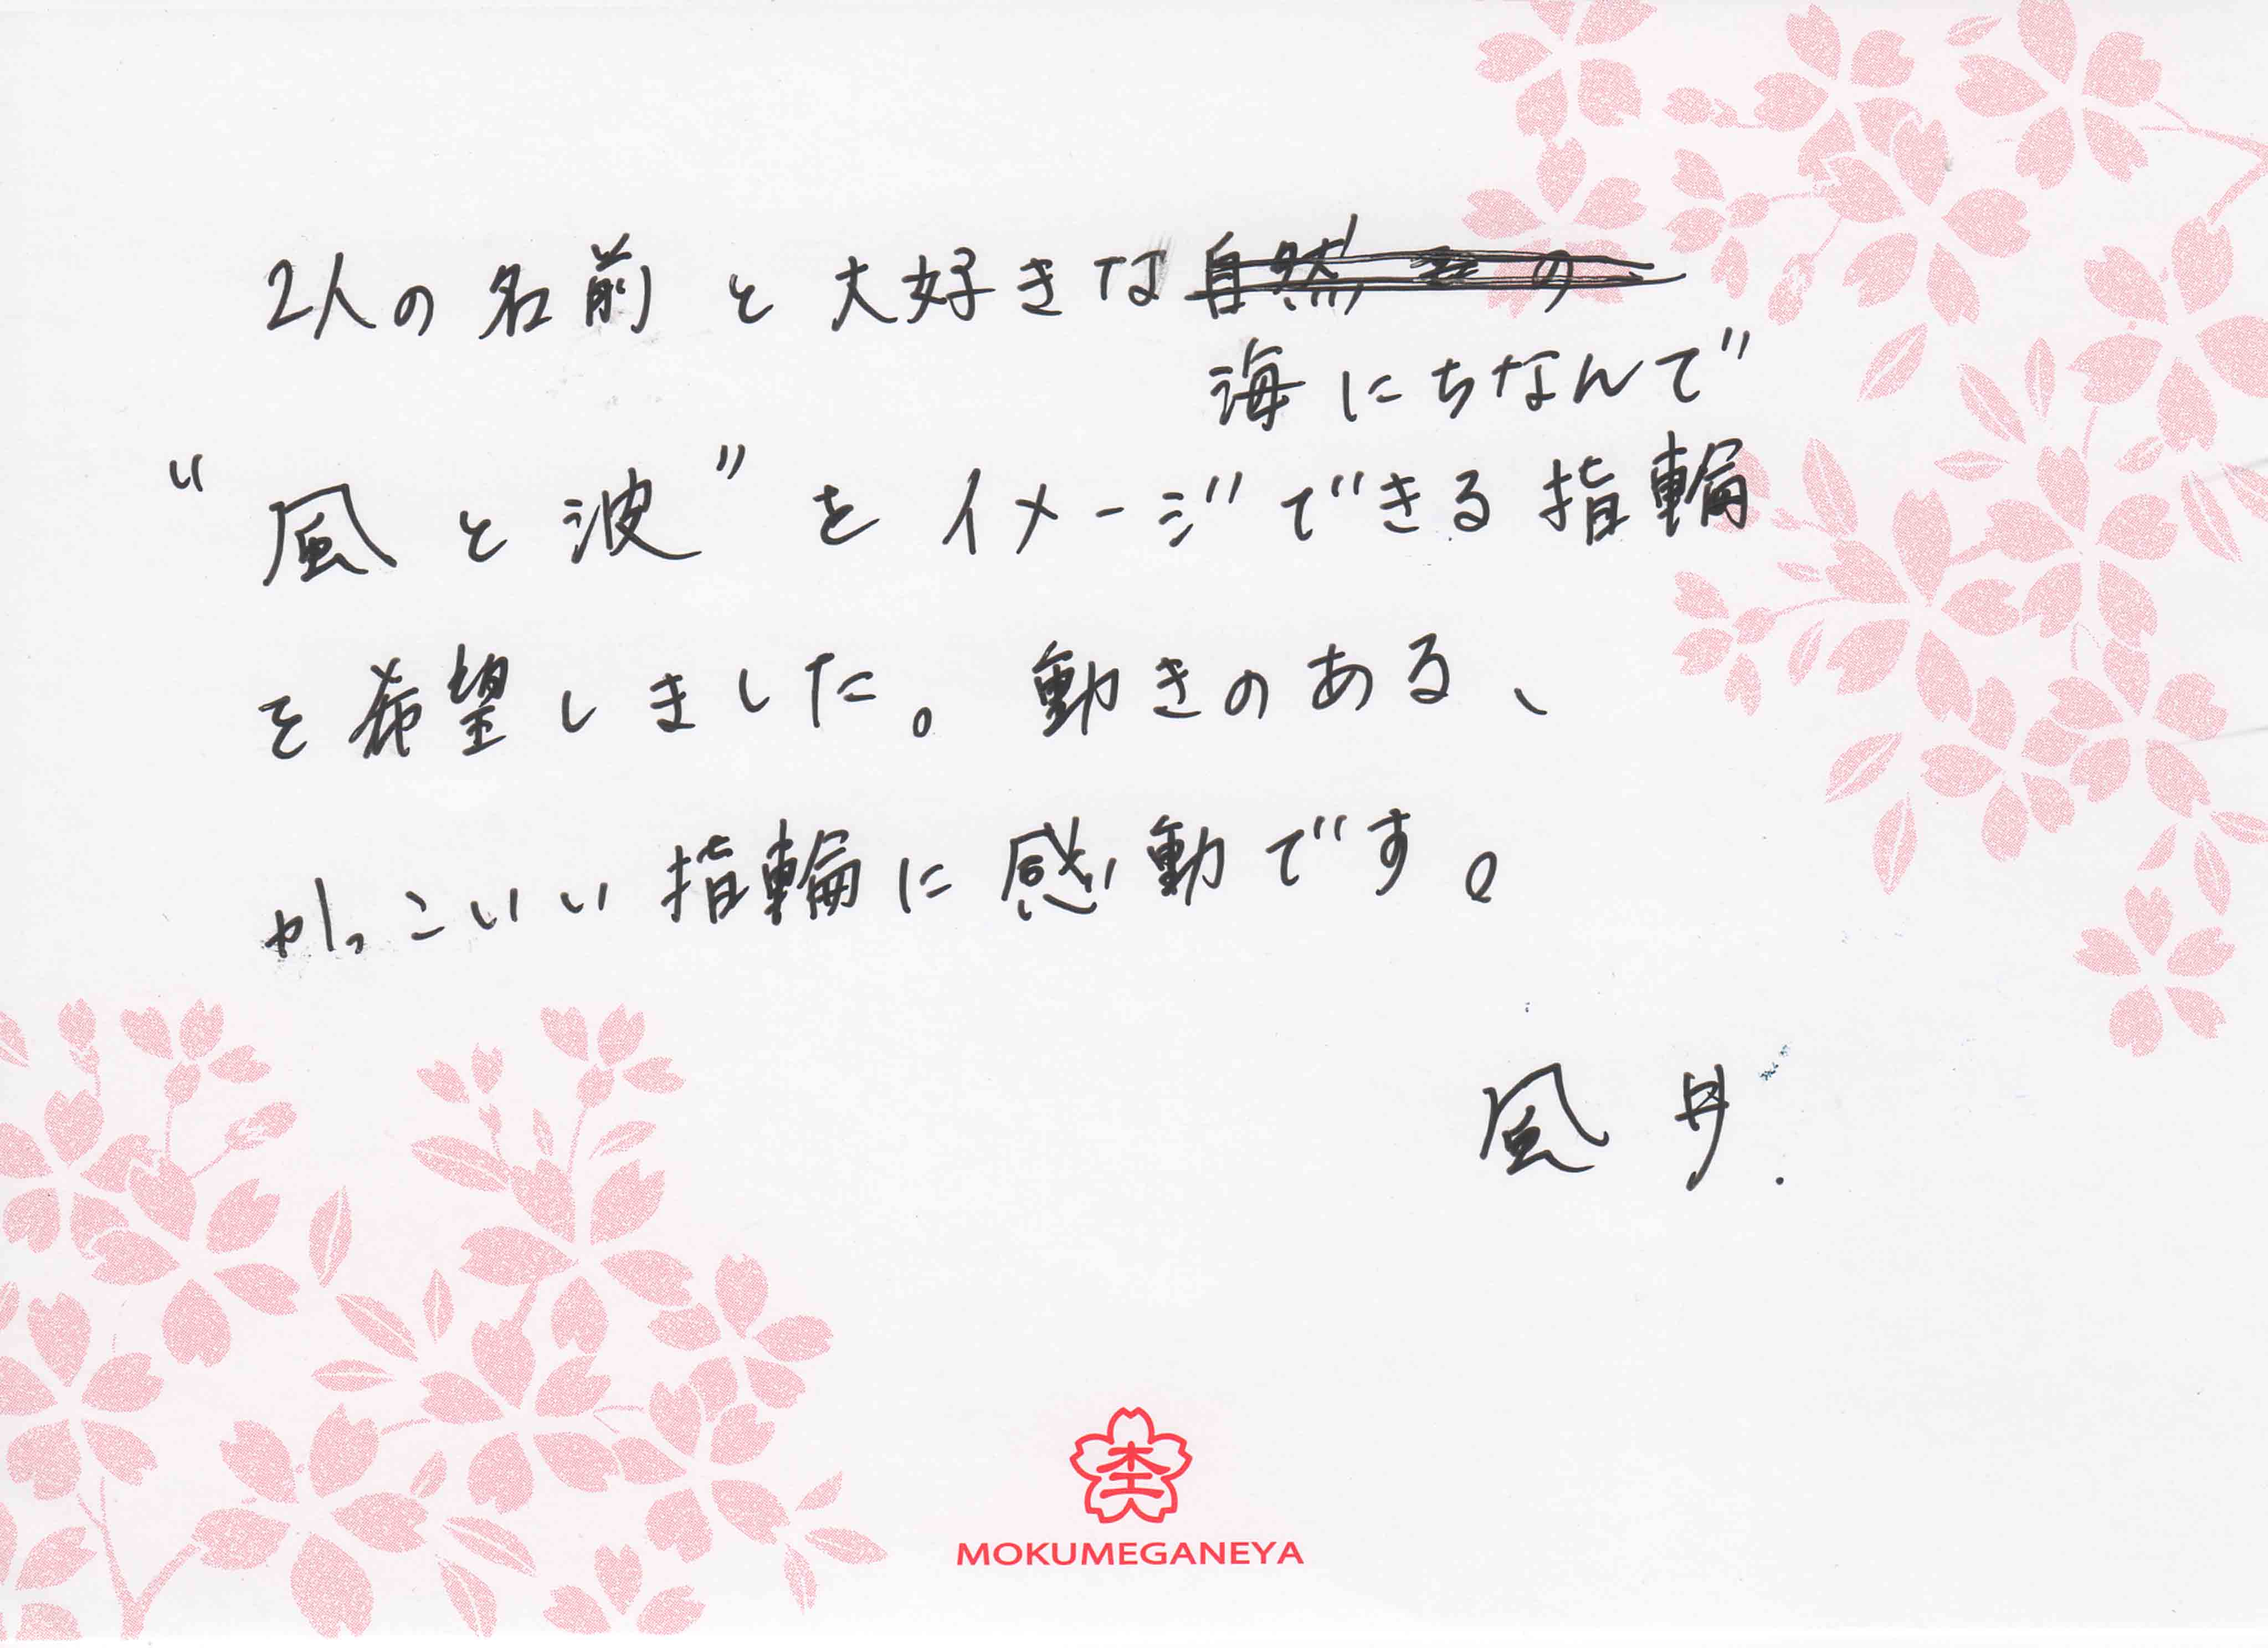 2人の名前と大好きな自然 の
海にちなんで
"風と波"をイメージできる指輪
を希望しました。動きのある、
かっこいい指輪に感動です。
風
杢
MOKUMEGANEYA